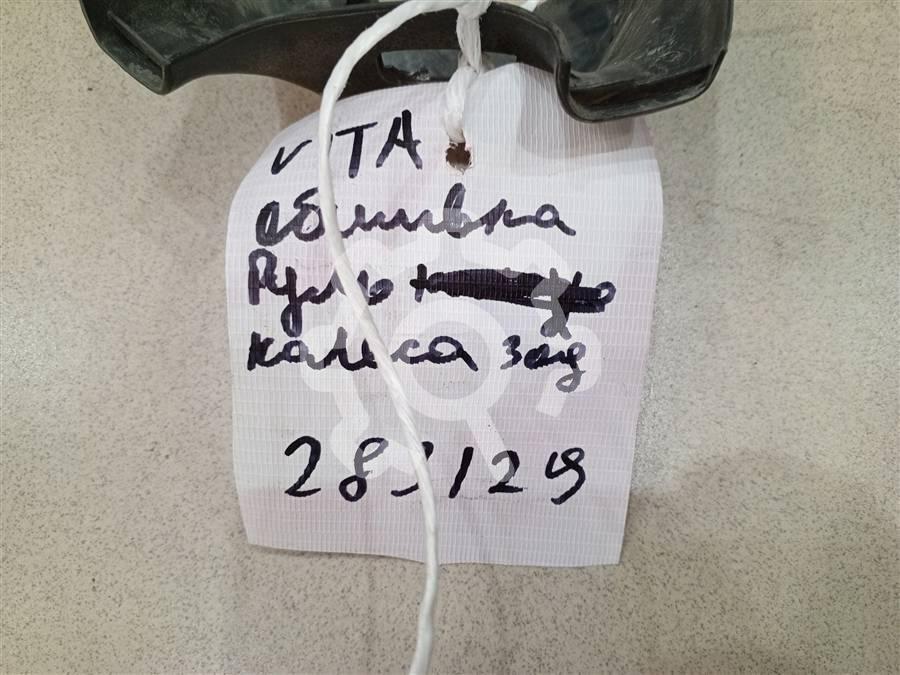 VITA
обшивка
Руль
калеса зад
283129